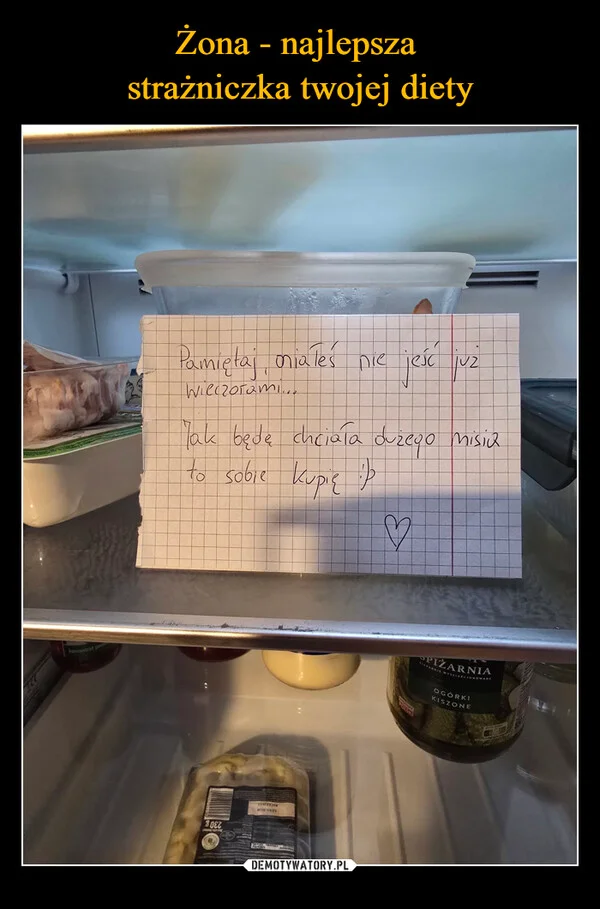 Żona - najlepsza
strażniczka twojej diety
Pamiętaj, miałeś nie jeść już
wieczorami...
Jak będę chciała dużego misia
to sobie kupię :p
♡
SPIŻARNIA
OGÓRKI
KISZONE
230 g
DEMOTYWATORY.PL